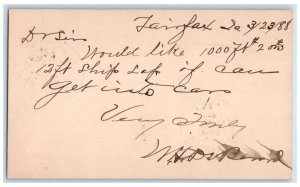 Fairfax Ia 3/23/88
Dr Sir
Would like 1000 ft
12 ft Ship Lap if can
get into car
Very Truly